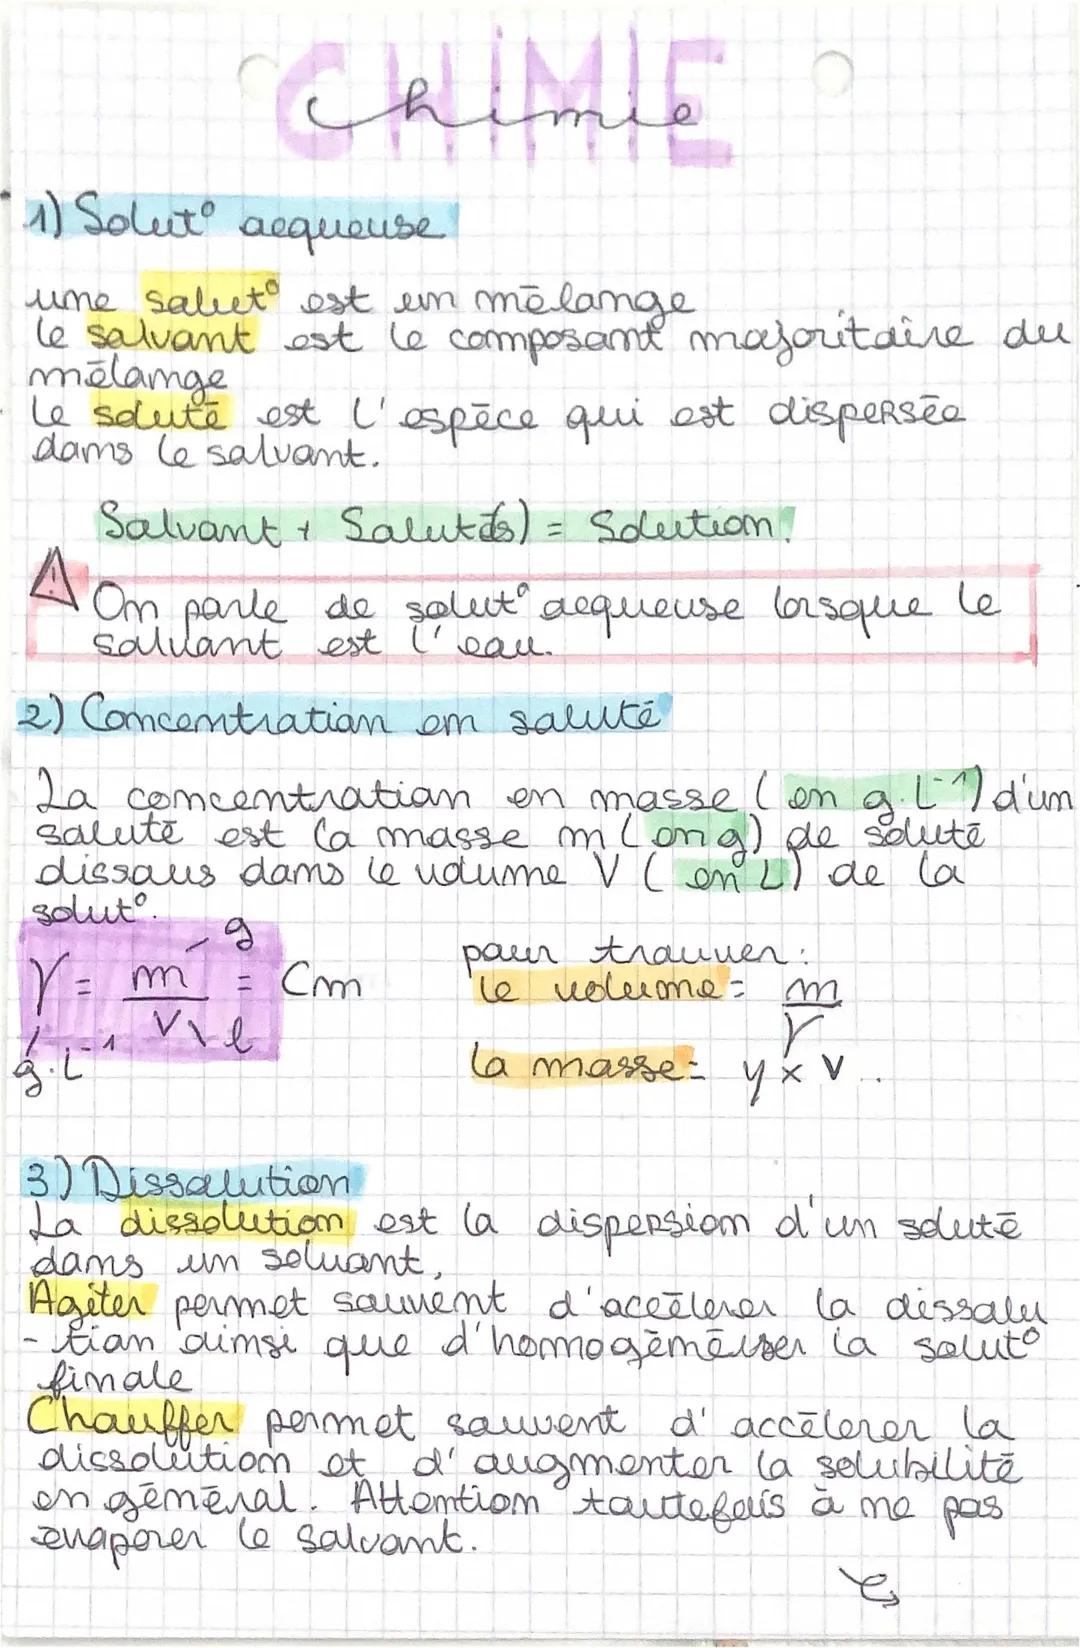 CHIMIE
Chimie
1) Solut° aequeuse
une solut° est un mélange
le solvant est le composant majoritaire du
mélange
Le soluté est l'espèce qui est dispersée
dans le solvant.
Solvant + Soluté(s) = Solution!
! On parle de solut° aequeuse lorsque le
solvant est l'eau.
2) Concentration en soluté
La concentration en masse (en g.L⁻¹) d'un
soluté est la masse m (en g) de soluté
dissous dans le volume V (en L) de la
solut°.
g
γ = m/V = Cm
l
g.L⁻¹
pour trouver:
le volume = m/γ
la masse = γ × V
3) Dissolution
La dissolution est la dispersion d'un soluté
dans un solvant,
Agiter permet souvent d'accélerer la dissolu
-tion ainsi que d'homogénéiser la solut°
finale
Chauffer permet souvent d'accélerer la
dissolution et d'augmenter la solubilité
en général. Attention toutefois à ne pas
evaporer le solvant.